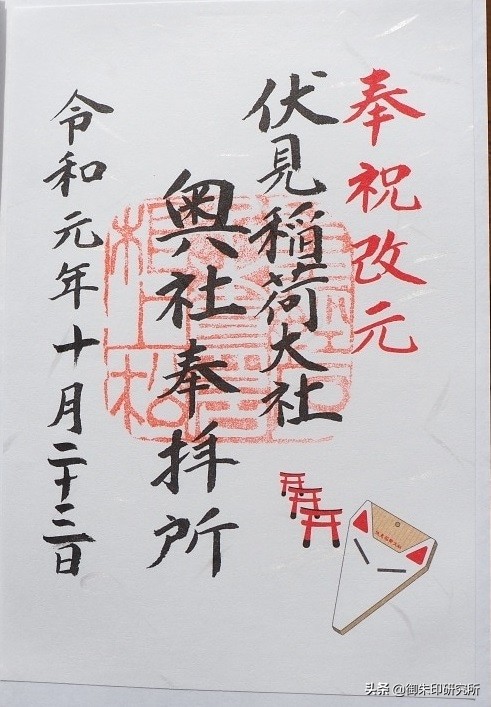 奉祝改元
伏見稲荷大社
奥社奉拝所
令和元年十月二十三日
头条 @御朱印研究所